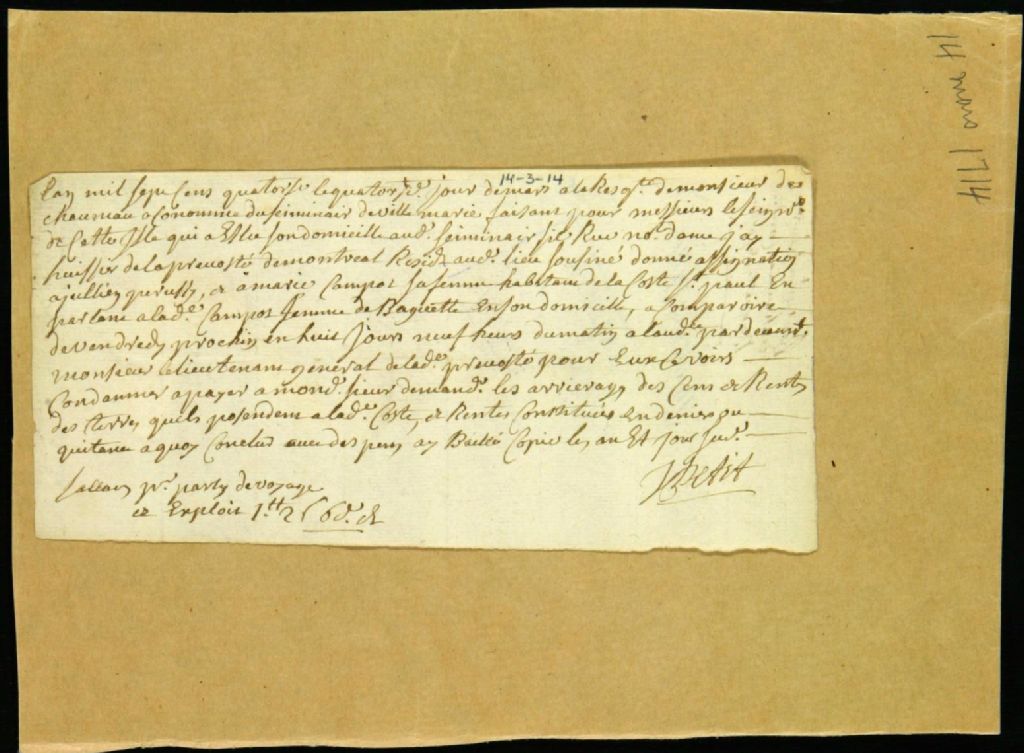 14 mars 1714
14-3-14
Lan mil sept Cens quatorse lequatorze.e jour demars ala Req.te demonsieur de
chaumau oeconomme duseiminair deville marie faisant pour messieurs lesseign.rs
de Cette Isle qui a Eslu son domicille aud. seiminair sis Rue no. dame j'ay
huissier de la prevosté demontreal Resid.t aud. lieu sousiné donné assignation
ajullien perussy, & a marie Campos sa femme habitans de la Coste st. paul En
parlant a lad.e Campos femme de Baguette En son domicille, a Comparoire
de vendredy prochin en huit Jours neuf heurs du matin a laud.ce pardevant
monsieur le lieutenant general de lad.e prevosté pour Eux Ce voirs
Condamner apayer a mond. sieur demand.r les arrierages des Cens & Rentes
des terres quils possendent a lad.e Coste, & Rentes Constituées en deniers ou
quitance a quoy Conclud avec despens ay Baillé Copie les an Et jour sud.
JPetit
sallaire pr. party de voyage
& Exploit 1.tt 2 s 6 d.